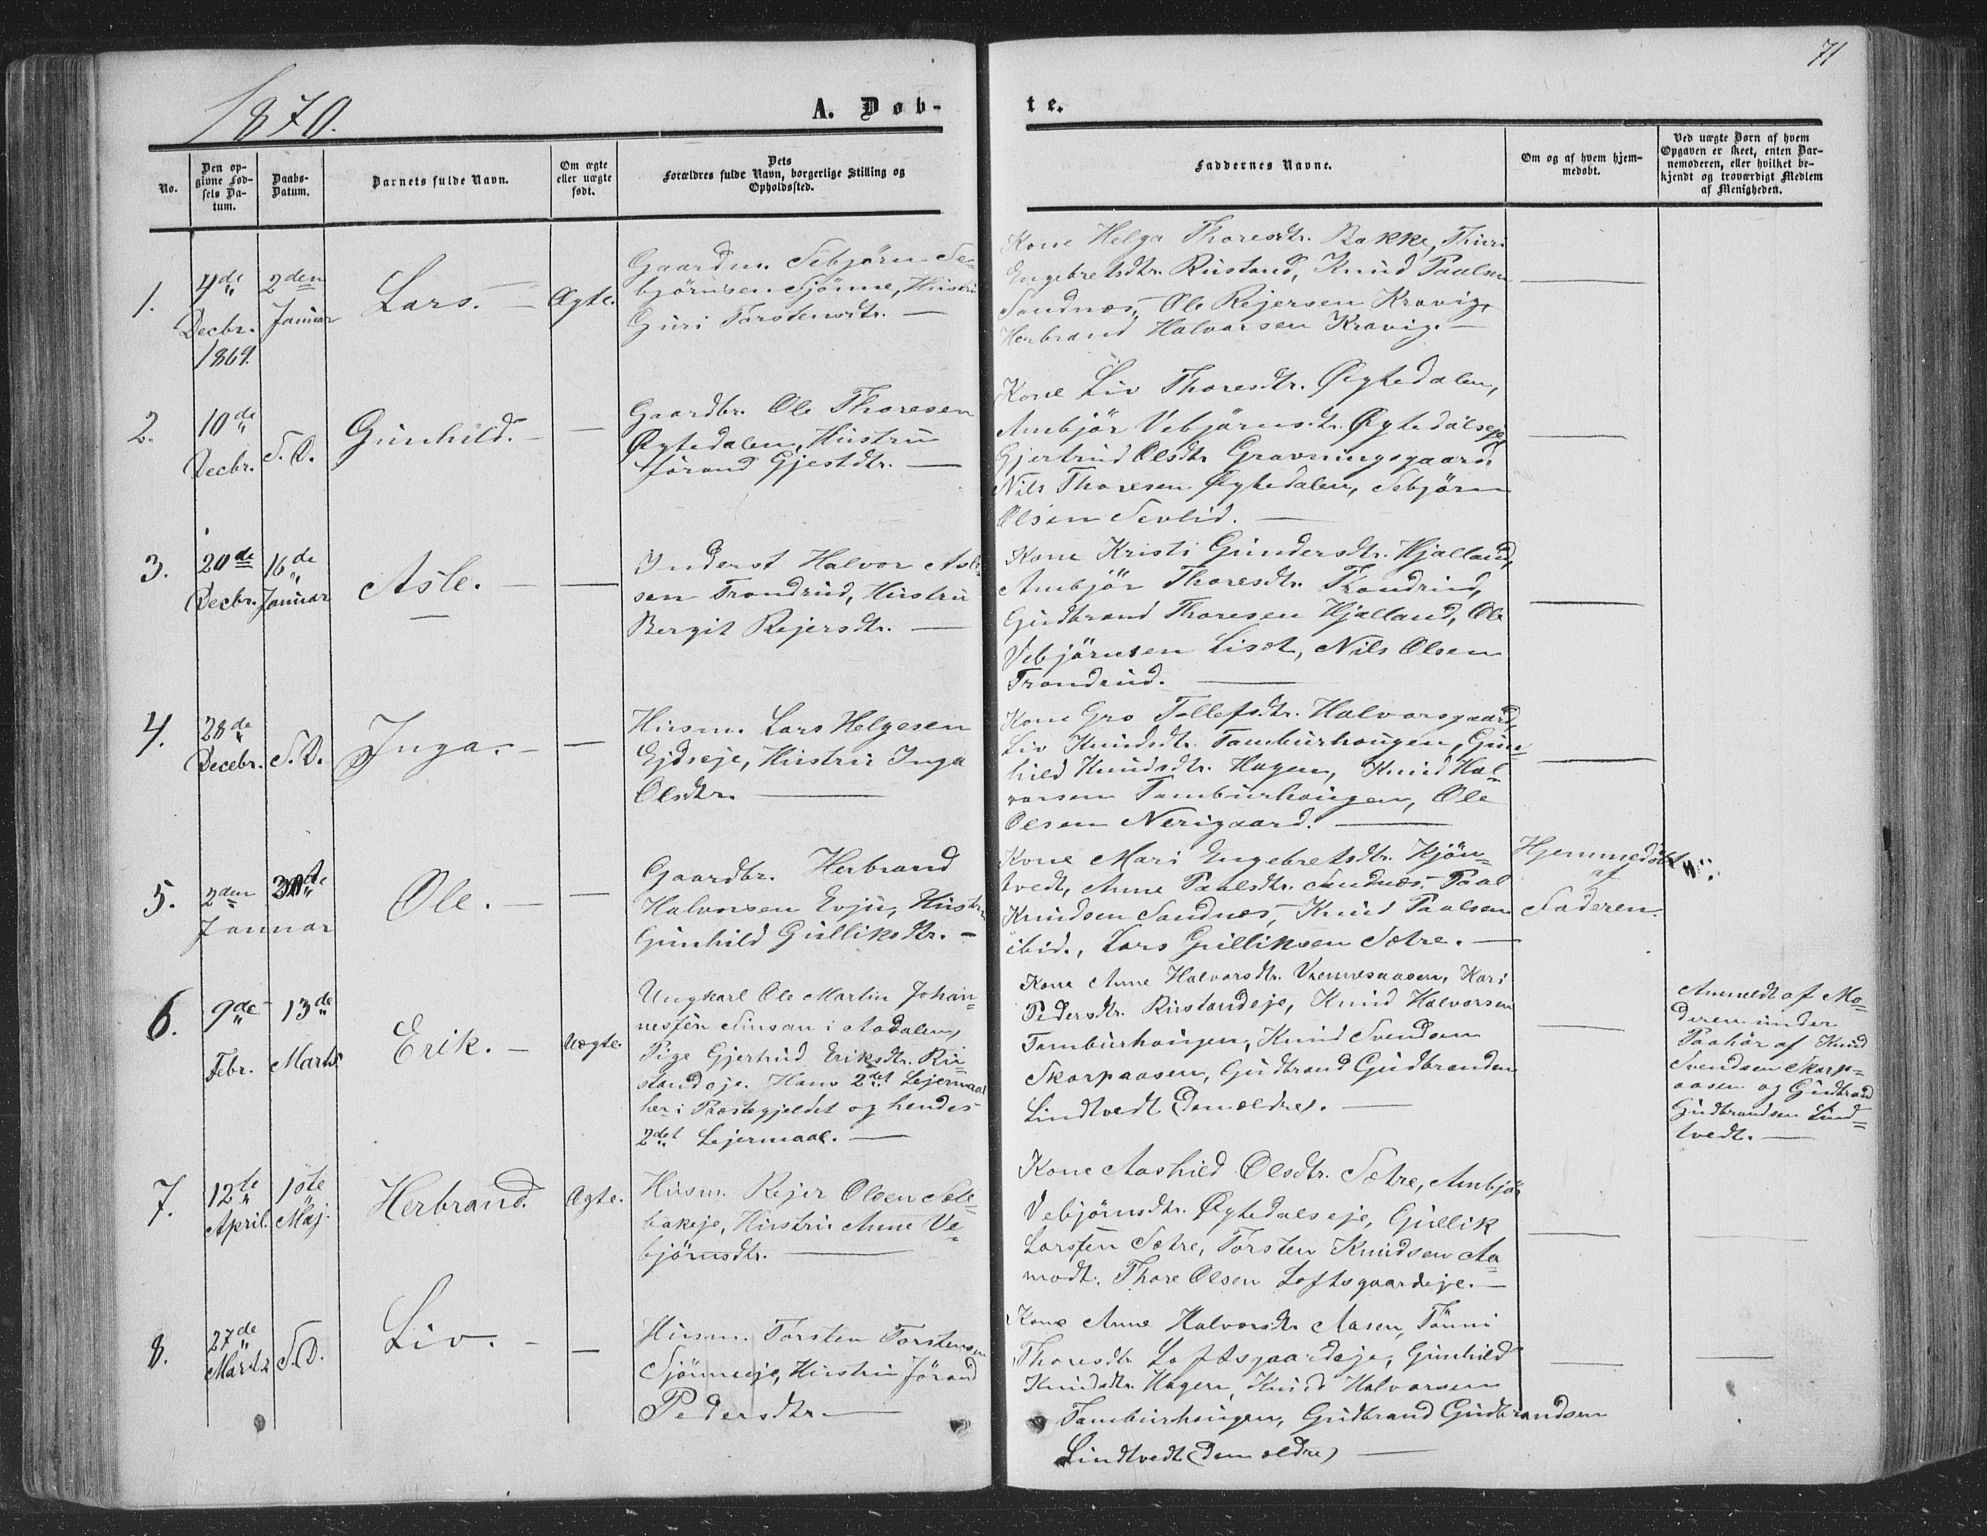 71
1870.
A. Døb-
te.
No.
Den op-
givne Fød-
sels Da-
tum.
Daabs-
Datum.
Barnets fulde Navn.
Om ægte
eller uægte
født.
Dets
Forældres fulde Navn, borgerlige Stilling og
Opholdssted.
Faddernes Navne.
Om og af hvem hjem-
medøbt.
Ved uægte Børn af hvem
Opgaven er skeet, enten Bar-
nemoderen, eller hvilket be-
kjendt og troværdigt Medlem
af Menigheden.
1.
4de
Decbr.
1869.
2den
Januar
Lars.
Ægte.
Gaardm. Sebjörn Se-
björnsen Sjönne, Hustru
Guri Torstensdtr. —
Kone Helga Thoresdtr. Bakke, Thuri
Engebretsdtr. Rustand, Knud Paalsen
Sandnæs, Ole Rejersen Kravig,
Herbrand Halvorsen Kravig. —
2.
10de
Decbr.
S. D.
Gunhild. —
Gaardbr. Ole Thoresen
Øygtedalen, Hustru
Jörand Gjestdtr. —
Kone Liv Thoresdtr. Øygtedalen,
Ambjör Vebjörnsdtr. Øygtedalseje,
Gjertrud Olsdtr. Gravningsgaard,
Nils Thoresen Øygtedalen, Sebjörn
Olsen Sevlid. —
3.
20de
Decbr.
16de
Januar
Asle. —
Inderst Halvor Asle-
sen Trondrud, Hustru
Bergit Rejersdtr. —
Kone Kristi Gundersdtr. Hjalland,
Ambjör Thoresdtr. Trondrud,
Gudbrand Thoresen Hjalland, Ole
Vebjörnsen List, Nils Olsen
Trondrud. —
4.
28de
Decebr.
S. D.
Inga. —
Husm. Lars Helgesen
Ejdseje, Hustru Inga
Olsdtr. —
Kone Gro Tollefsdtr. Halvorsgaard,
Liv Knudsdtr. Tamburhaugen, Gun-
hild Knudsdtr. Hagen, Knud Hal-
vorsen Tamburhaugen, Ole
Olsen Nerigaard. —
5.
2den
Januar
Ole. —
Gaardbr. Herbrand
Halvorsen Evju, Hustru
Gunhild Gulliksdtr. —
Kone Mari Engebretsdtr. Kjön-
tvedt, Anne Paalsdtr. Sandnæs, Paal
Knudsen Sandnæs, Knud Paalsen
ibid., Lars Gulliksen Sætre. —
Hjemmedøbt
af
Faderen.
6.
9de
Febr.
13de
Marts
Erik. —
Uægte.
Ungkarl Ole Martin Johan-
nesfen Sinsan i Aadalen,
Pige Gjertrud Eriksdtr. Ru-
standeje. Hans 2det Lejermaal
her i Præstegjeldet og hendes
2det Lejermaal. —
Kone Anne Halvorsdtr. Vrennesaasen, Kari
Pedersdtr. Rustandeje, Knud Halvorsen
Tamburhaugen, Knud Svendsen
Skarpaasen, Gudbrand Gudbrandsen
Lindtvedt (den ældre). —
Anmeldt af Mo-
deren under
Paahör af Knud
Svendsen Skarp-
aasen og Gudbrand
Gudbrandsen Lind-
tvedt. —
7.
12te
April.
1ste
Maj.
Herbrand.
Ægte.
Husm. Rejer Olsen Sole-
bakeje, Hustru Anne Ve-
björnsdtr. —
Kone Aashild Olsdtr. Sætre, Ambjör
Vebjörnsdtr. Øygtedalseje, Gullik
Larsfen Sætre, Torsten Knudsen Aa-
modt. Thore Olsen Loftsgaardeje. —
8.
27de
Marts
S. D.
Liv. —
Husm. Torsten Torstensen
Sjönneeje, Hustru Jörand
Pedersdtr. —
Kone Anne Halvorsdtr. Aasen, Tönni
Thoresdtr. Loftsgaardeje, Gunhild
Knudsdtr. Hagen, Knud Halvorsen
Tamburhaugen, Gudbrand Gudbrandsen
Lindtvedt (den ældre) —